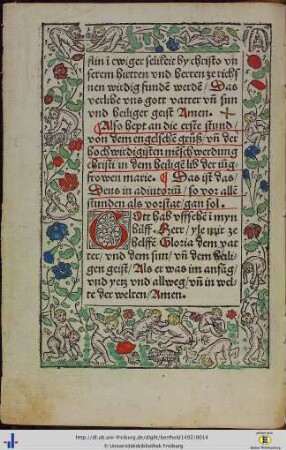 sün i ewiger selikeit by christo vn
serem hirtten vnd herren ze richs
nen wirdig fundē werdē / Das
verlihe vns gott vatter vn̄ sun
vnd heiliger geist Amen.
Also hept an die erste stund /
von dem engelschē grůß / vn̄ der
hochwirdigisten mēschwerdung
christi in dem heiligē lib der iūg
frowen marie. Das ist das /
Deus in adiutoriū / so vor allē
stunden als vorstat / gan sol.
Gott hab vffsehē i myn
hilff. Herr / yle mir ze
helffē Gloria dem vat
ter / vnd dem sun / vn̄ dem heili
gen geist / Als er was im anfāg /
vnd yetz vnd allweg / vn̄ in wel
te der welten / Amen.
http://dl.ub.uni-freiburg.de/diglit/berthold1492/0014
© Universitätsbibliothek Freiburg